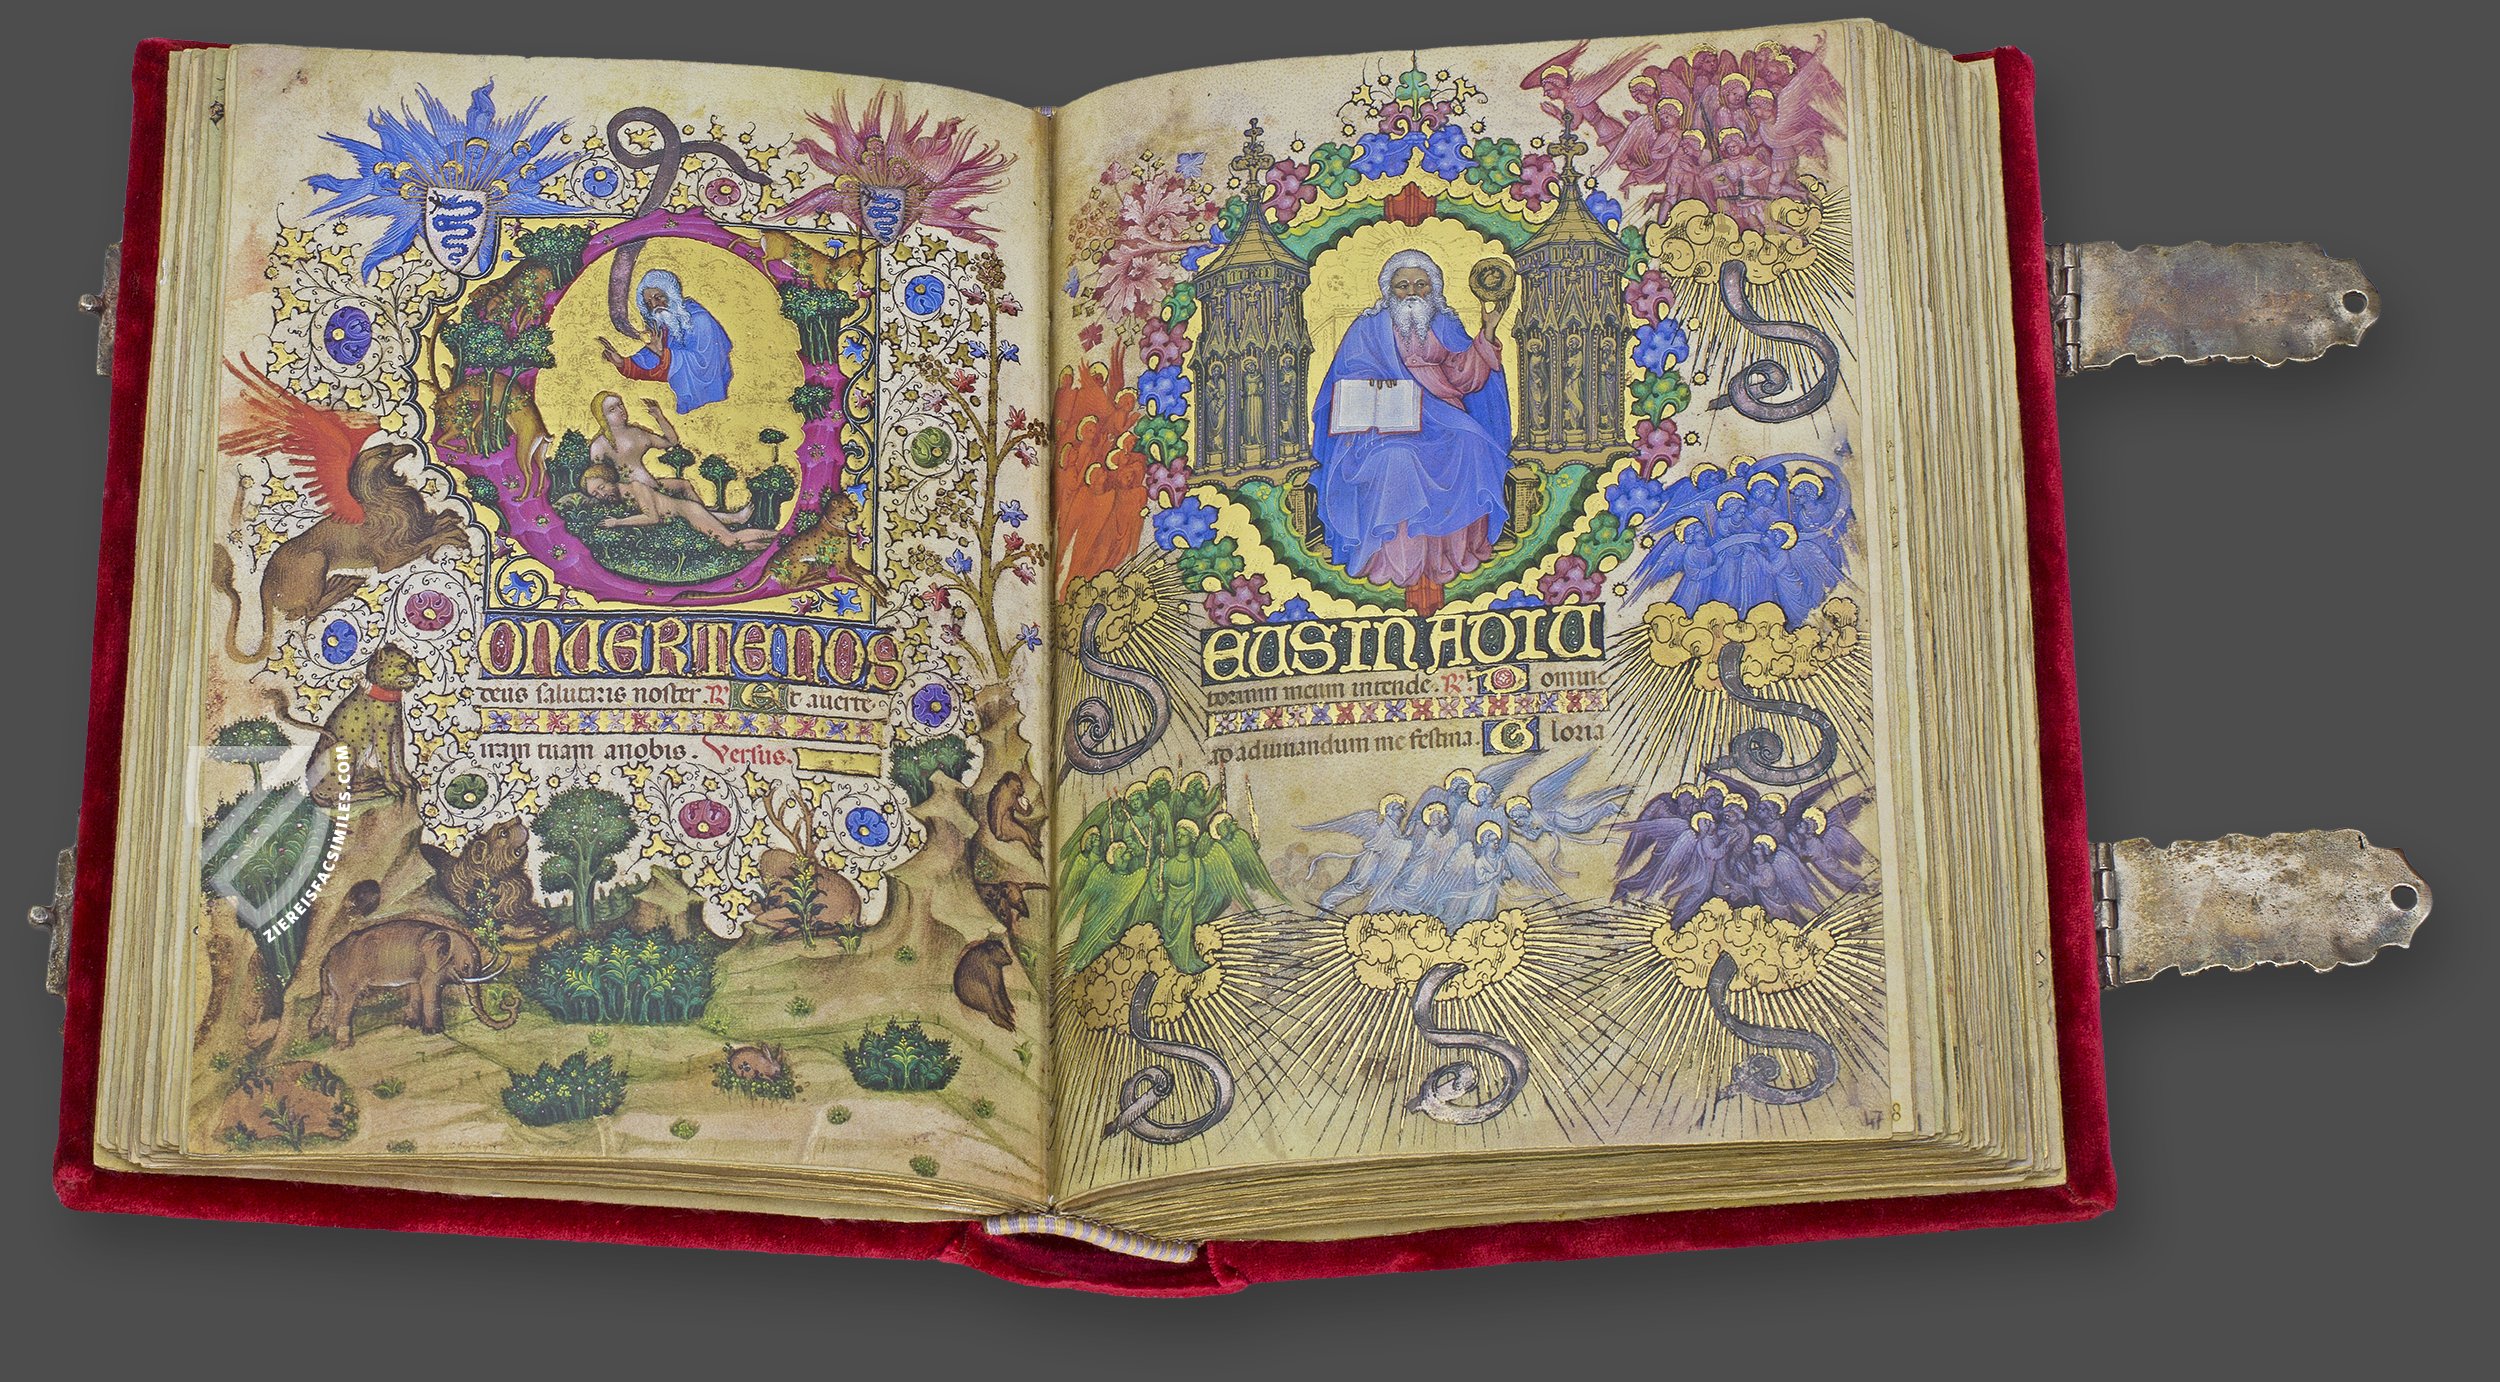 CONUERTENOS
deus salutaris noster. R. Et auerte
iram tuam anobis. Versus.
DEUSINADIU
torium meum intende. R. Domine
ad adiuuandum me festina. Gloria
47 8
ZIEREISFACSIMILES.COM